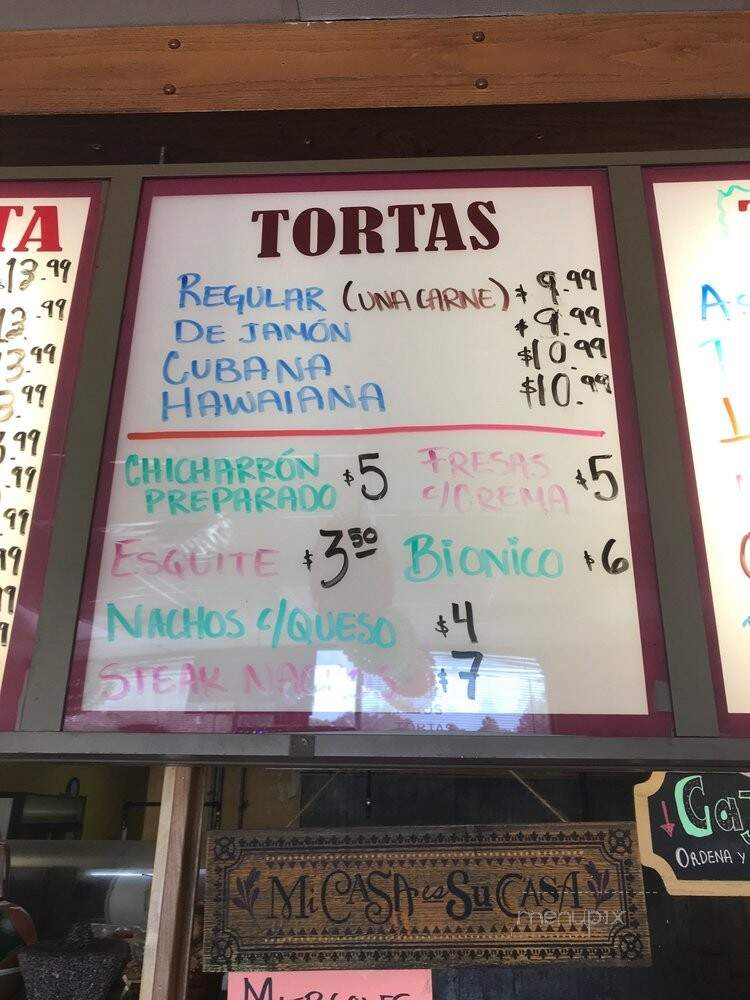 TA
13.99
.99
3.99
.99
.99
.99
TORTAS
REGULAR (UNA CARNE) $9.99
DE JAMÓN $9.99
CUBANA $10.99
HAWAIANA $10.99
CHICHARRÓN PREPARADO $5
FRESAS C/CREMA $5
ESQUITE $3.50
BIONICO $6
NACHOS C/QUESO $4
STEAK NACHOS $7
MI CASA es SU CASA
menupix
ORDENA Y
MIERCOLES